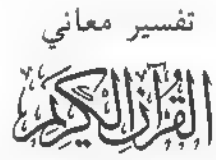 تفسير معاني
القرآن الكريم